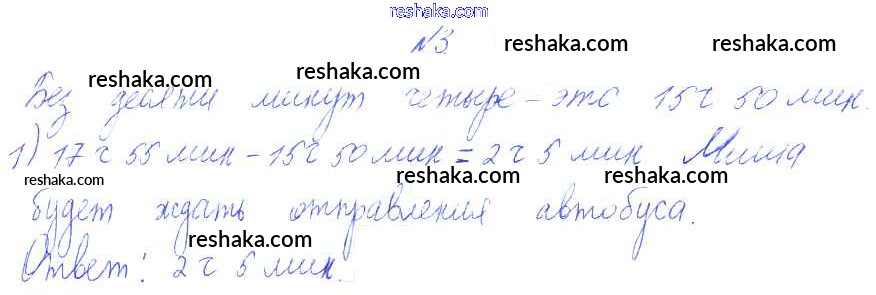 reshaka.com
№3. reshaka.com reshaka.com
reshaka.com reshaka.com
Без десяти минут четыре - это 15 ч 50 мин.
1) 17 ч 55 мин - 15 ч 50 мин = 2 ч 5 мин Миша
reshaka.com reshaka.com reshaka.com
будет ждать отправления автобуса.
reshaka.com
Ответ: 2 ч 5 мин.